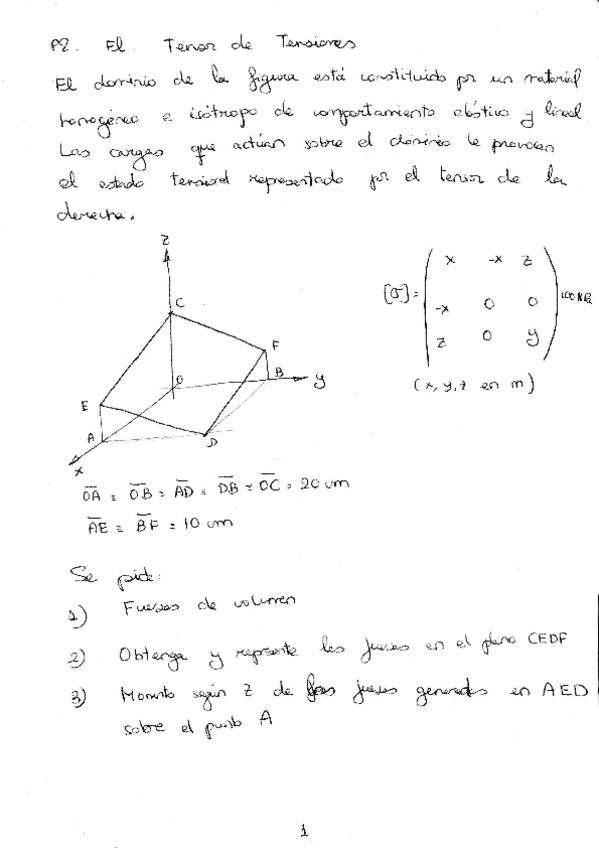 P2. El Tensor de Tensiones
El dominio de la figura está constituido por un material
homogéneo e isótropo de comportamiento elástico y lineal
Las cargas que actúan sobre el dominio le provocan
el estado tensional representado por el tensor de la
derecha.
z
C
F
O
B
y
E
A
D
x
[σ] = ( x -x z
-x 0 0
z 0 y ) 100 MPa
(x, y, z en m)
OA = OB = AD = DB = OC = 20 cm
AE = BF = 10 cm
Se pide:
1) Fuerzas de volumen
2) Obtenga y represente las fuerzas en el plano CEDF
3) Momento según Z de las fuerzas generadas en AED
sobre el punto A
1